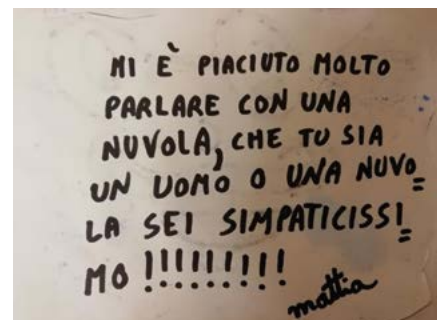 MI È PIACIUTO MOLTO
PARLARE CON UNA
NUVOLA, CHE TU SIA
UN UOMO O UNA NUVO=
LA SEI SIMPATICISSI=
MO !!!!!!!!!
mattia